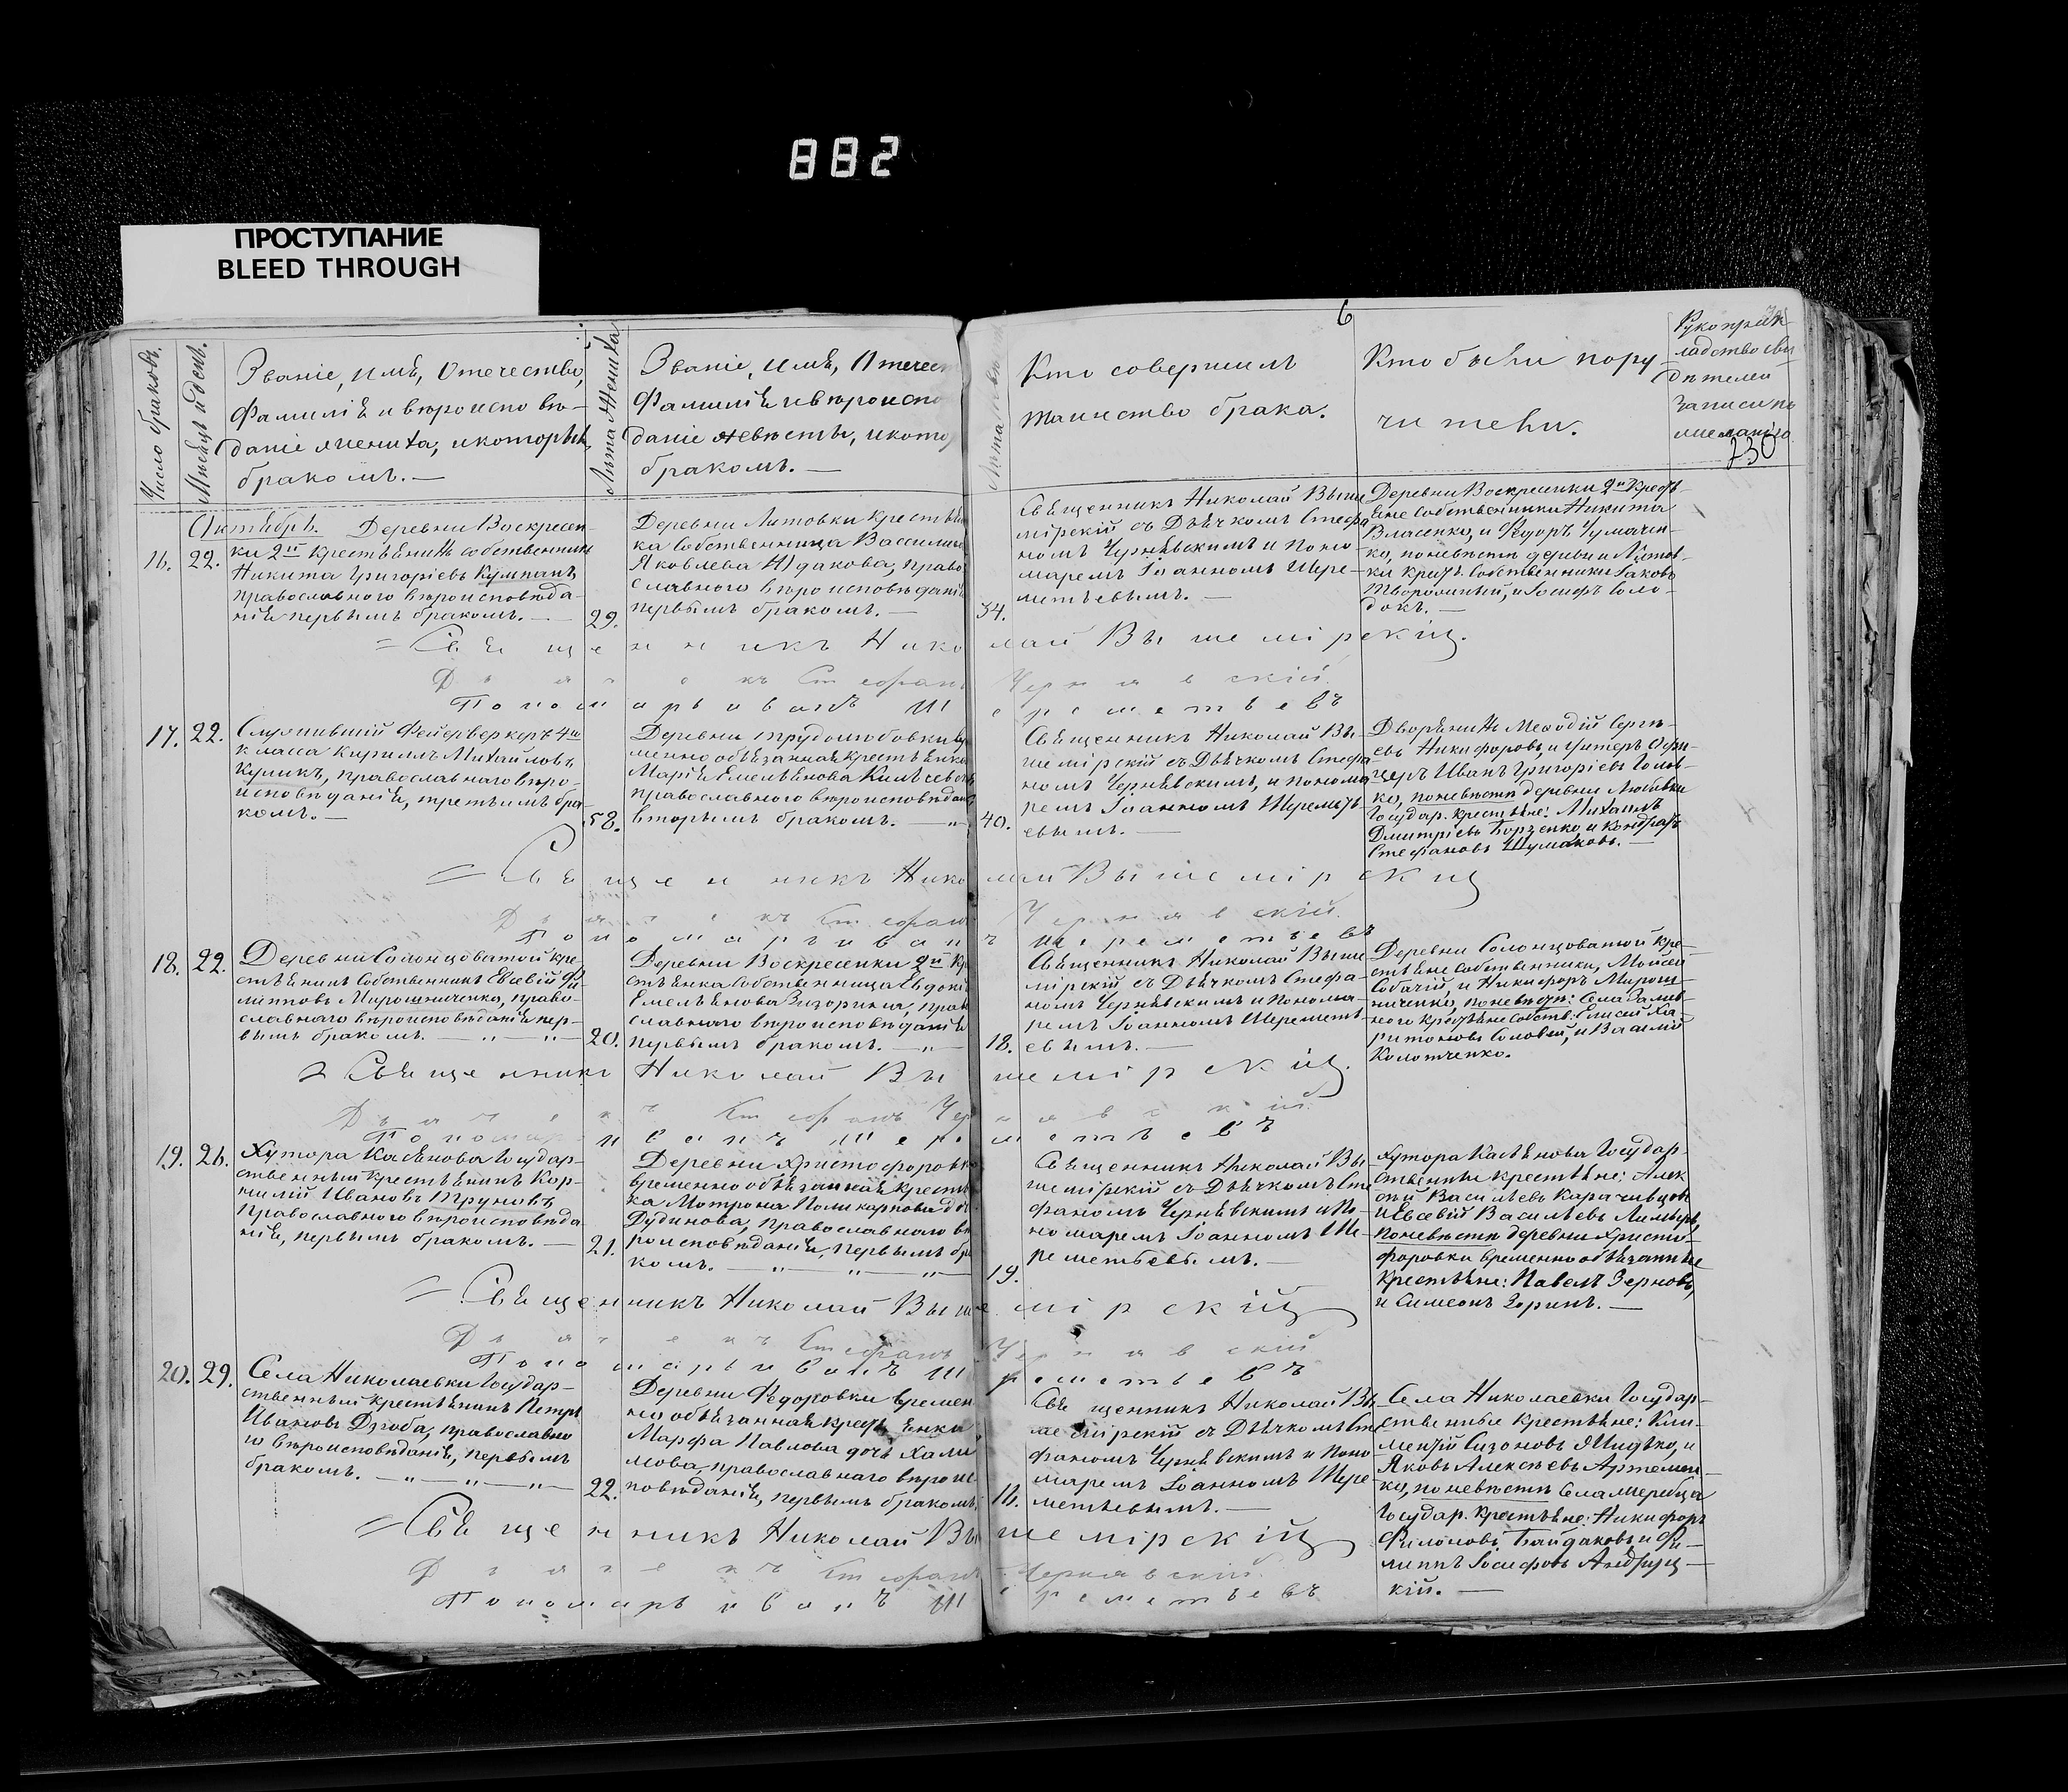 882
ПРОСТУПАНИЕ
BLEED THROUGH
6
Число браковъ.
Мѣсяцъ и день.
Званіе, имя, Отечество,
Фамилія и вѣроисповѣ-
даніе жениха, и которымъ
бракомъ. —
Лѣта жениха
Званіе, имя, Отечес
Фамилія и вѣроиспо
даніе невѣсты, и кото
бракомъ. —
Кто совершилъ
таинство брака.
Кто были пору-
чители.
Рукоприк-
ладство сви
дѣтелей
записи по
желанію.
730
Октябрь.
16. 22.
Деревни Воскресен-
ки 2й крестьянинъ собственникъ
Никита Григоріевъ Кумпанъ
православнаго вѣроисповѣда-
нія первымъ бракомъ. —
29.
Деревни Литовки крестьян
ка собственница Васили
Яковлева Юдакова, право
славнаго вѣроисповѣданія
первымъ бракомъ. —
34.
Священникъ Николай Выше
мірскій съ Дьячкомъ Стефа
номъ Чернявскимъ и Поно-
маремъ Іоанномъ Шере-
метьевымъ. —
Деревни Воскресенки 2й Кресть-
яне собственники Никита
Власенко, и Ѳедоръ Чумачен-
ко, по невѣстѣ деревни Литов-
ки крест. собственники Іаковъ
и Іосифъ Соло-
докъ. —
Священникъ Николай Вышемірскій.
Дьячекъ Стефанъ Чернявскій.
Пономарь Иванъ Шереметьевъ
17. 22.
Служившій Фейерверкеръ 4го
класса Кириллъ Михайловъ
Куликъ, православнаго вѣро-
исповѣданія, третьимъ бра-
комъ. —
58.
Деревни Трудолюбовки вре
менно обязанная крестьянка
Марія Емельянова
православнаго вѣроисповѣдан
вторымъ бракомъ. — „
40.
Священникъ Николай Вы-
шемірскій съ Дьячкомъ Стефа
номъ Чернявскимъ, и понома
ремъ Іоанномъ Шереметь-
евымъ. —
Дворянинъ Меѳодій Сергѣ-
евъ Никифоровъ, и унтеръ Офи-
церъ Иванъ Григоріевъ Голов-
ко, по невѣстѣ деревни Любивки
Государ. крестьяне: Михаилъ
Дмитріевъ Борзенко, и Кондратъ
Стефановъ Шумаковъ. —
Священникъ Николай Вышемірскій
Дьячекъ Стефанъ Чернявскій.
Пономарь Иванъ Шереметьевъ
18. 22.
Деревни Солонцоватой кре-
стьянинъ собственникъ Евсевій Фи
липповъ Мирошниченко, право-
славнаго вѣроисповѣданія пер-
вымъ бракомъ. — „ — „ —
20.
Деревни Воскресенки 2й Кр
стьянка собственница Евдокі
Емельянова Загорина, прав
славнаго вѣроисповѣданія
первымъ бракомъ. — „ —
18.
Священникъ Николай Выше
мірскій съ Дьячкомъ Стефа-
номъ Чернявскимъ и Понома-
ремъ Іоанномъ Шеремет-
евымъ. —
Деревни Солонцоватой кре-
стьяне собственники, Мойсей
Собачій, и Никифоръ Мирош-
ниченко, по невѣстѣ: Села Залив-
ного крестьяне собств: Елисей Ха-
ритоновъ Соловей, и Василій
Колотченко.
Священникъ Николай Вышемірскій.
Дьячекъ Стефанъ Чернявскій
Пономарь Иванъ Шереметьевъ
19. 26.
Хутора Касьянова Государ-
ственный крестьянинъ Кор-
нилій Ивановъ Труновъ
православнаго вѣроисповѣда
нія, первымъ бракомъ. —
21.
Деревни Христофоровк
временно обязанная кресть
ка Мотрона Поликарпова до
Дудинова, православнаго вѣ
роисповѣданія, первымъ бр
комъ. — „ — „ — „ —
19.
Священникъ Николай Вы
шемірскій съ Дьячкомъ Сте
фаномъ Чернявскимъ и По-
номаремъ Іоанномъ Ше-
реметьевымъ. —
Хутора Касьянова Государ-
ственные крестьяне: Алек
сѣй Васильевъ
и Евсевій Васильевъ
по невѣстѣ деревни Христо-
форовки временно обязанные
крестьяне: Павелъ Зерновъ,
и Симеонъ Зоринъ. —
Священникъ Николай Вышемірскій
Дьячекъ Стефанъ Чернявскій
Пономарь Иванъ Шереметьевъ
20. 29.
Села Николаевки Государ-
ственный крестьянинъ Петръ
Ивановъ Дзюба, православно
го вѣроисповѣданія, первымъ
бракомъ. — „ — „ —
22.
Деревни Ѳедоровки времен
но обязанная крестьянка
Марфа Павлова дочь Хали
мова, православнаго вѣроис
повѣданія, первымъ бракомъ.
18.
Священникъ Николай Вы
шемірскій съ Дьячкомъ Сте
фаномъ Чернявскимъ и Поно
маремъ Іоанномъ Шере-
метьевымъ. —
Села Николаевки Государ-
ственные крестьяне: Кли-
ментій Сизоновъ и
Яковъ Алексѣевъ Артемен-
ко, по невѣстѣ Села
Государ. Крестьяне: Никифоръ
Филоновъ Байдаковъ и Фи-
липпъ Іосифовъ
кій. —
Священникъ Николай Вышемірскій
Дьячекъ Стефанъ Чернявскій.
Пономарь Иванъ Шереметьевъ